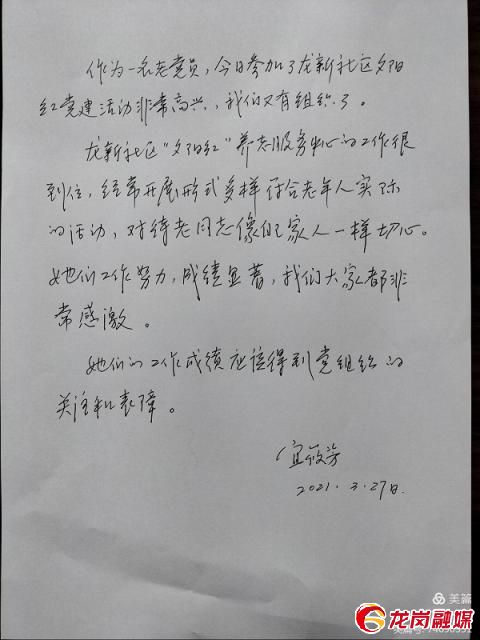 作为一名老党员，今日参加了龙新社区夕阳
红党建活动非常高兴，我们又有组织了。
龙新社区“夕阳红”养老服务中心的工作很
到位，经常开展形式多样符合老年人实际
的活动，对待老同志像自家人一样切心。
她们工作努力，成绩显著，我们大家都非
常感激。
她们的工作成绩应该得到党组织的
关注和表障。
宜筱芳
2021.3.27日.
美篇
龙岗融媒